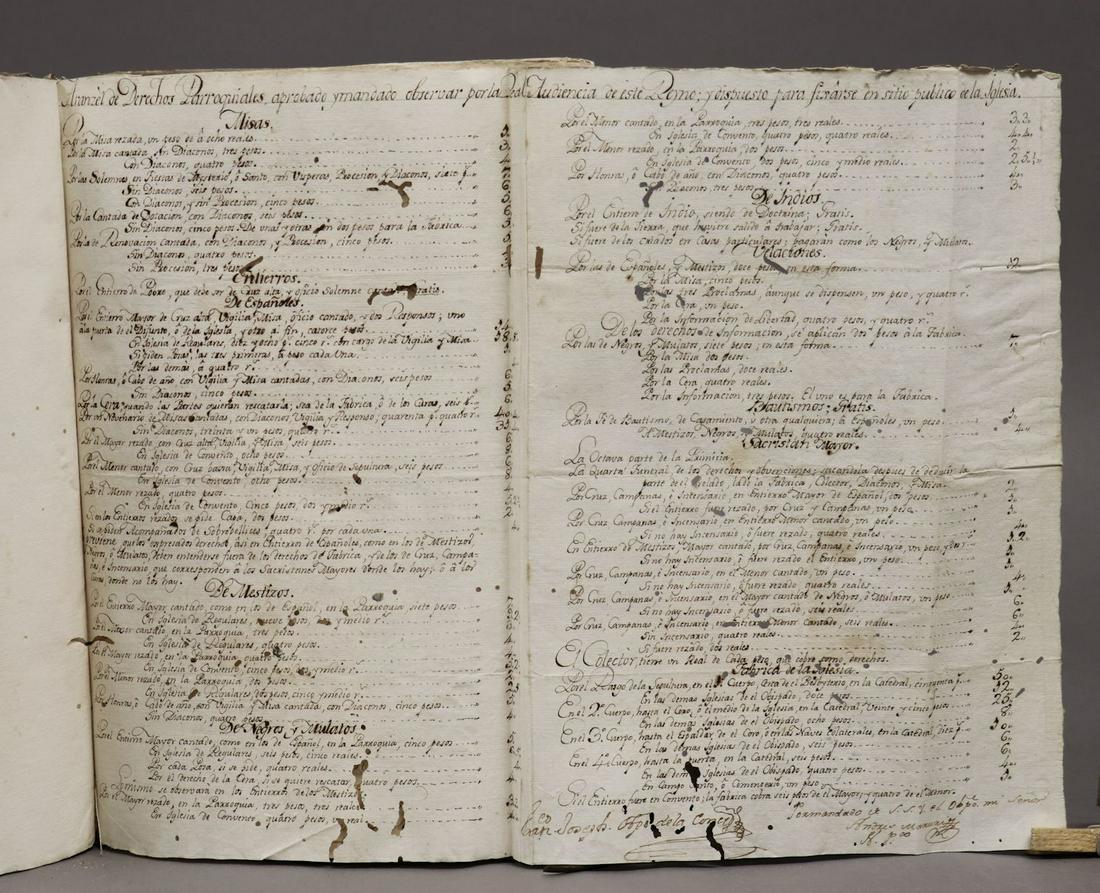 Aranzèl de Derechos Parroquiales, aprobado y mandado observar por la Real Audiencia de este Reyno; y dispuesto para fixarse en sitio publico de la Iglesia.
Misas.
Por la Misa rezada, un peso, ocho reales
Por la Misa cantada sin Diaconos, tres pesos
Con Diaconos, quatro pesos
Por las Solemnes, en Fiestas de Misterio, ò Santo, con Visperas, Procesion, y Diaconos, siete p.s
Sin Diaconos, seis pesos
Con Diaconos, y sin Procesion, cinco pesos
Por la Cantada de Dotacion, con Diaconos, seis pesos
Sin Diaconos, cinco pesos. De unas y otras, son dos pesos para la Fabrica
Por la de Renovacion cantada, con Diaconos, y Procesion, cinco pesos
Sin Diaconos, quatro pesos
Sin Procesion, tres pesos
Entierros.
Por el Entierro de Pobre, que debe ser de Cruz alta, y oficio Solemne cantado, gratis.
De Españoles.
Por el Entierro Mayor de Cruz alta, Vigilia, Misa, oficio cantado, y dos Responsos; uno
a la puerta de el Difunto, ò de la Iglesia, y otro al fin, catorce pesos
En Iglesia de Regulares, diez y ocho p.s cinco r.s con cargo de la Vigilia y Misa
Si piden Posas, las tres primeras, à peso cada una
Por las demas, à quatro r.s
Por Honras, ò Cabo de año, con Vigilia y Misa cantadas, con Diaconos, seis pesos
Sin Diaconos, cinco pesos
Por la Cera, quando las Partes quieran rescatarla; sea de la Fabrica, ò de los Curas, seis p.s
Por un Novenario de Misas cantadas, con Diaconos, Vigilia y Responso, quarenta p.s quatro r.s
Sin Diaconos, treinta y un pesos, quatro r.s
Por el Mayor rezado con Cruz alta, Vigilia, y Misa, seis pesos
En Iglesia de Convento, ocho pesos
Por el Menor cantado, con Cruz baxa, Vigilia, Misa, y oficio de Sepultura, seis pesos
En Iglesia de Convento, ocho pesos
Por el Menor rezado, quatro pesos
En Iglesia de Convento, cinco pesos, dos y medio r.s
Si en los Entierros rezados se pide Capa, dos pesos
Si se piden Acompañados de Sobrepellices, quatro r.s por cada uno
que los expresados derechos, asi en Entierros de Españoles, como en los de Mestizos,
Negros, ò Mulatos, deben entenderse fuera de los derechos de Fabrica, y de los de Cruz, Campa-
nas, è Incensario, que corresponden à los Sacristanes Mayores donde los hay; ò à los
Curas donde no los hay.
De Mestizos.
Por el Entierro Mayor, cantado como en los de Español, en la Parroquia siete pesos
En Iglesia de Regulares, nueve pesos, dos y medio r.s
Por el Menor cantado, en la Parroquia, tres pesos
En Iglesia de Regulares, quatro pesos
Por el Mayor rezado, en la Parroquia, quatro pesos
En Iglesia de Convento, cinco pesos, dos y medio r.s
Por el Menor rezado, en la Parroquia, dos pesos
En Iglesia de Regulares, dos pesos, cinco y medio r.s
Por Honras, ò Cabo de año, con Vigilia y Misa cantada, con Diaconos, cinco pesos
Sin Diaconos, quatro pesos
De Negros y Mulatos.
Por el Entierro Mayor cantado, como en los de Español, en la Parroquia, cinco pesos
En Iglesia de Regulares, seis pesos, cinco reales
Por cada Posa, si se pide, quatro reales
Por el derecho de la Cera, si se quiere rescatar, quatro pesos
Lo mismo se observarà en los Entierros de los Mestizos
Por el Mayor rezado, en la Parroquia, tres pesos, tres reales
En Iglesia de Convento, quatro pesos, un real
Por el Menor cantado, en la Parroquia, tres pesos, tres reales 3.3.
En Iglesia de Convento, quatro pesos, quatro reales 4.4.
Por el Menor rezado, en la Parroquia, dos pesos 2
En Iglesia de Convento, dos pesos, cinco y medio reales
Por Honras, ò Cabo de año, con Diaconos, quatro pesos 4.
Sin Diaconos, tres pesos 3.
De Indios.
Por el Entierro de Indio, siendo de Doctrina; Gratis.
Si fuere de la Sierra, que huviere salido à trabajar; Gratis.
Si fuere de los criados en Casas particulares; pagaràn como los Negros, y Mulatos.
Velaciones.
Por las de Españoles, y Mestizos, doce pesos, en esta forma 12
Por la Misa, cinco pesos.
Por las tres Proclamas, aunque se dispensen, un peso, y quatro r.s
Por la Cera, un peso.
Por la Informacion de Libertad, quatro pesos, y quatro r.s
De los derechos de Informacion, se aplican dos pesos à la Fabrica.
Por las de Negros, y Mulatos, siete pesos; en esta forma 7.
Por la Misa dos pesos.
Por las Proclamas, doce reales.
Por la Cera, quatro reales.
Por la Informacion, tres pesos. El uno es para la Fabrica.
Bautismos; Gratis.
Por la Fè de Bautismo, de Casamiento, ù otra qualquiera; à Españoles, un peso
A Mestizos, Negros, y Mulatos, quatro reales
Sacristan Mayor.
La Octava parte de la Primicia.
La Quarta Funeral de los derechos y obvenciones; sacandola despues de deducir la
parte de el Prelado, la de la Fabrica, Colector, Diaconos, y Misa.
Por Cruz, Campanas, è Incensario, en Entierro Mayor de Español, dos pesos 2.
Si el Entierro fuere rezado, por Cruz, y Campanas, un peso
Por Cruz, Campanas, è Incensario, en Entierro Menor cantado, un peso
Si no hay Incensario, ò fuere rezado, quatro reales 4.
En Entierro de Mestizos, Mayor cantado, por Cruz, Campanas, è Incensario, un peso, y dos r.s
Si no hay Incensario, ò fuere rezado el Entierro, un peso
Por Cruz, Campanas, è Incensario, en el Menor cantado, un peso
Si no hay Incensario, ò fuere rezado, quatro reales 4.
Por Cruz, Campanas, è Incensario, en el Mayor cantado de Negros, ò Mulatos, un peso
Si no hay Incensario, ò fuere rezado, seis reales 6.
Por Cruz, Campanas, è Incensario, en Entierro Menor cantado, seis reales 6.
Sin Incensario, quatro reales 4.
Si fuere rezado, dos reales 2.
El Colector, tiene un Real de Cada peso, que cobre como derechos.
Fabrica de la Iglesia.
Por el Rasgo de la Sepultura, en el 1.r Cuerpo, cerca de el Presbiterio, en la Catedral, cinquenta p.s 50.
En las demas Iglesias de el Obispado, doce pesos 12.
En el 2.º Cuerpo, hasta el Coro, ò el medio de la Iglesia, en la Catedral, veinte y cinco pesos 25.
En las demas Iglesias de el Obispado, ocho pesos 8.
En el 3.º Cuerpo, hasta el Espaldar de el Coro, ò en las Naves Colaterales, en la Catedral, diez p.s
En las demas Iglesias de el Obispado, seis pesos 6.
En el 4.º Cuerpo, hasta la puerta, en la Catedral, seis pesos 6.
En las demas Iglesias de el Obispado, quatro pesos 4.
En Campo Santo, ò Cementerio, un peso
Si el Entierro fuere en Convento; la fabrica cobra seis pesos de el Mayor; y quatro de el Menor.
Por mandado de S.S.Y. el Obpo. mi Señor
Joseph